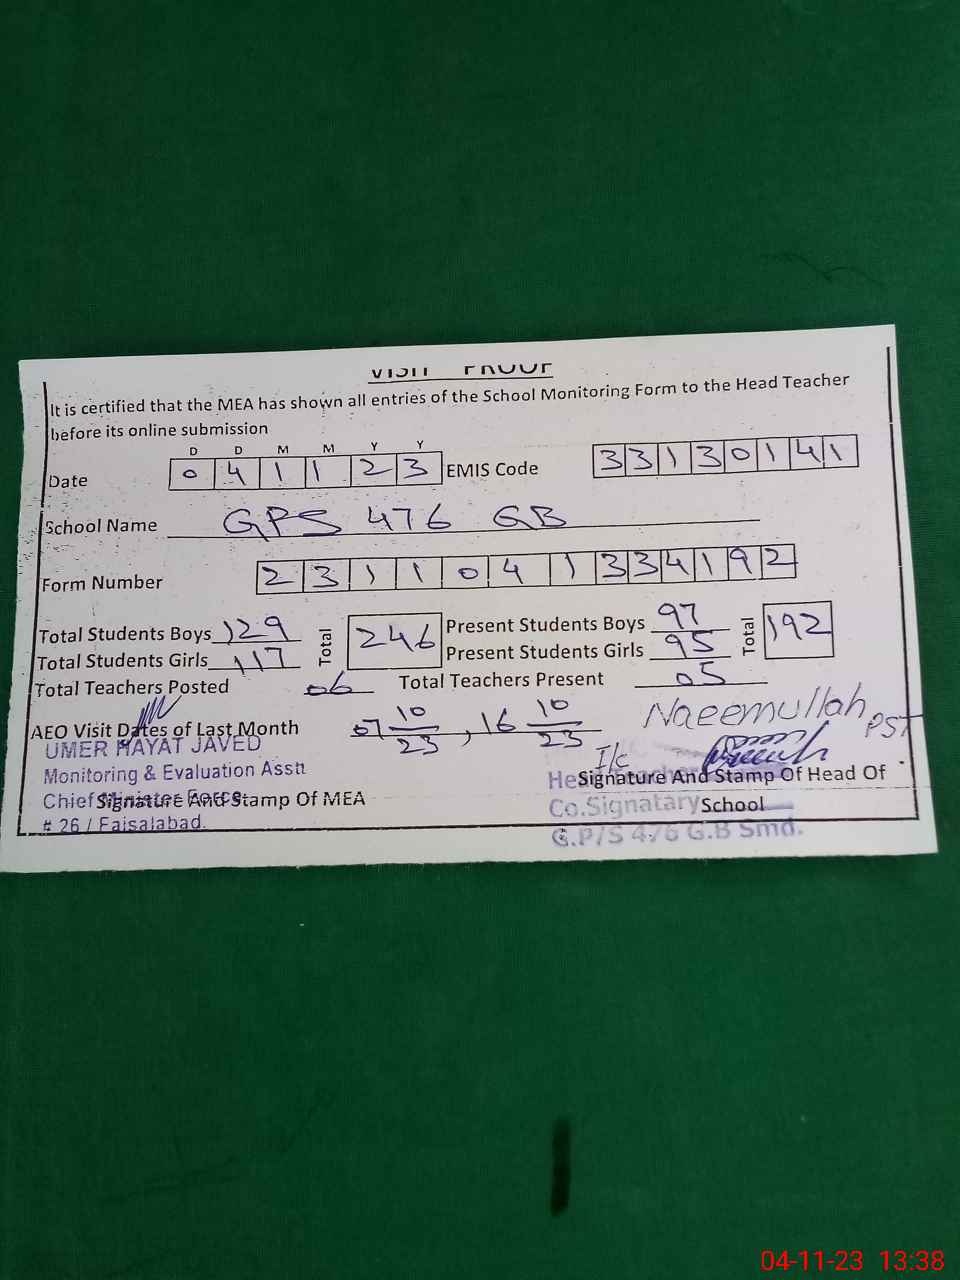 VISIT PROOF
It is certified that the MEA has shown all entries of the School Monitoring Form to the Head Teacher
before its online submission
D D M M Y Y
Date 0 4 1 1 2 3 EMIS Code 3 3 1 3 0 1 4 1
School Name GPS 476 GB
Form Number 2 3 1 1 0 4 1 3 3 4 1 9 2
Total Students Boys 129 Total 246 Present Students Boys 97 Total 192
Total Students Girls 117 Present Students Girls 95
Total Teachers Posted 06 Total Teachers Present 05
AEO Visit Dates of Last Month 07 10/23, 16 10/23 Naeemullah PST
UMER HAYAT JAVED
Monitoring & Evaluation Asstt
I/c
Signature And Stamp Of Head Of
School
Chief Minister Force
Signature And Stamp Of MEA
Co.Signatary
# 26 / Faisalabad.
G.P/S 476 G.B Smd.
04-11-23 13:38